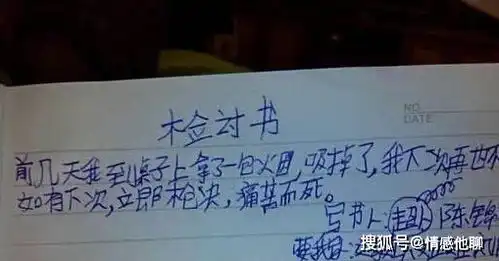 检讨书
NO.
DATE
前几天我到桌子上拿了一包火因,吸掉了,我下次再也不
如有下次,立即枪决,痛苦而死。
写书人: 陈锦
要我
搜狐号@情感他聊